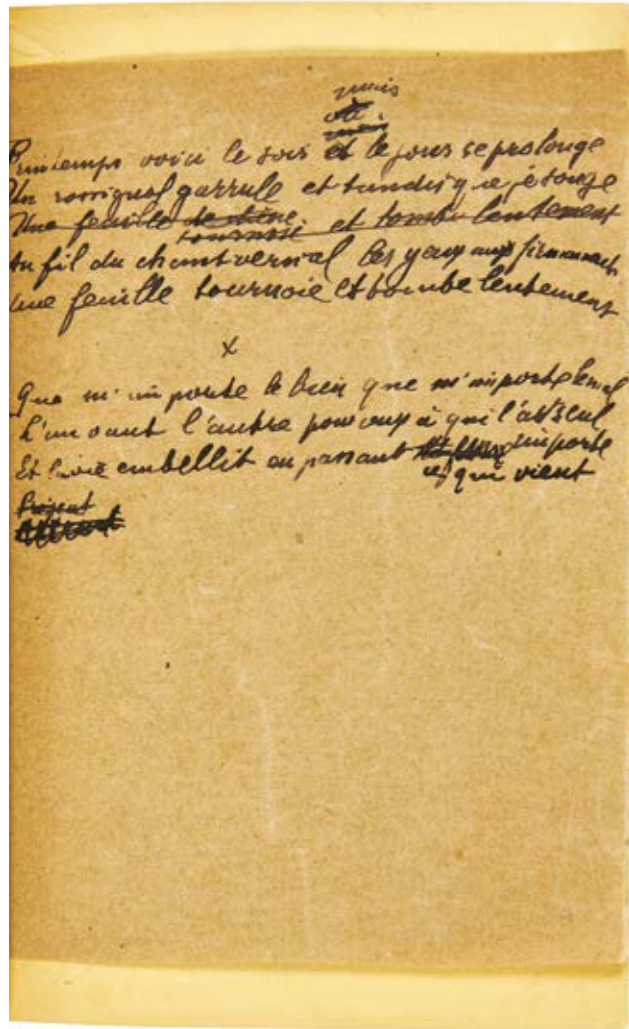 mais
où
mais
Printemps voici le soir et le jour se prolonge
Un rossignol garrule et tandis que je songe
Une feuille de chêne et tombe lentement
tournoie
Au fil du chant vernal les yeux aux firmaments
Une feuille tournoie et tombe lentement
x
Que m'importe le bien que m'importe le mal
L'un vaut l'autre pour
Et la vie embellit en passant importe
ce qui vient
Présent